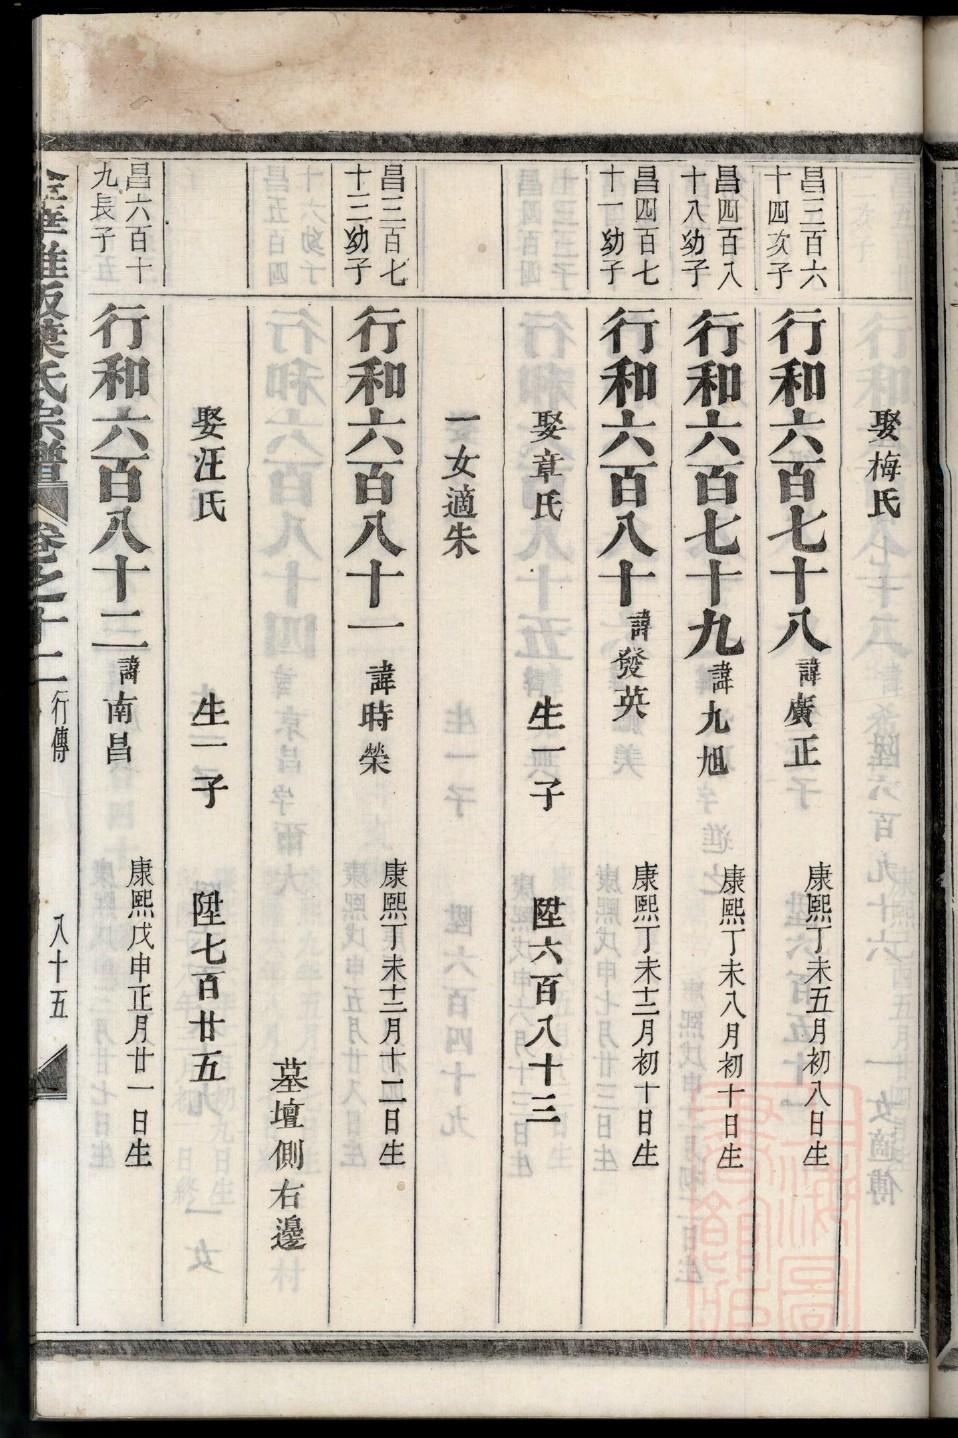 娶梅氏
昌三百六十四次子
行和六百七十八 諱廣正 康熙丁未五月初八日生
昌四百八十八幼子
行和六百七十九 諱九旭 康熙丁未八月初十日生
昌四百七十一幼子
行和六百八十 諱發英 康熙丁未十二月初十日生
娶章氏 生一子 陞六百八十三
一女適朱
昌三百七十三幼子
行和六百八十一 諱時榮 康熙丁未十二月十二日生
墓壇側右邊
娶汪氏 生一子 陞七百廿五
昌六百十九長子
行和六百八十二 諱南昌 康熙戊申正月廿一日生
葉氏宗譜 卷之十二 行傳 八十五